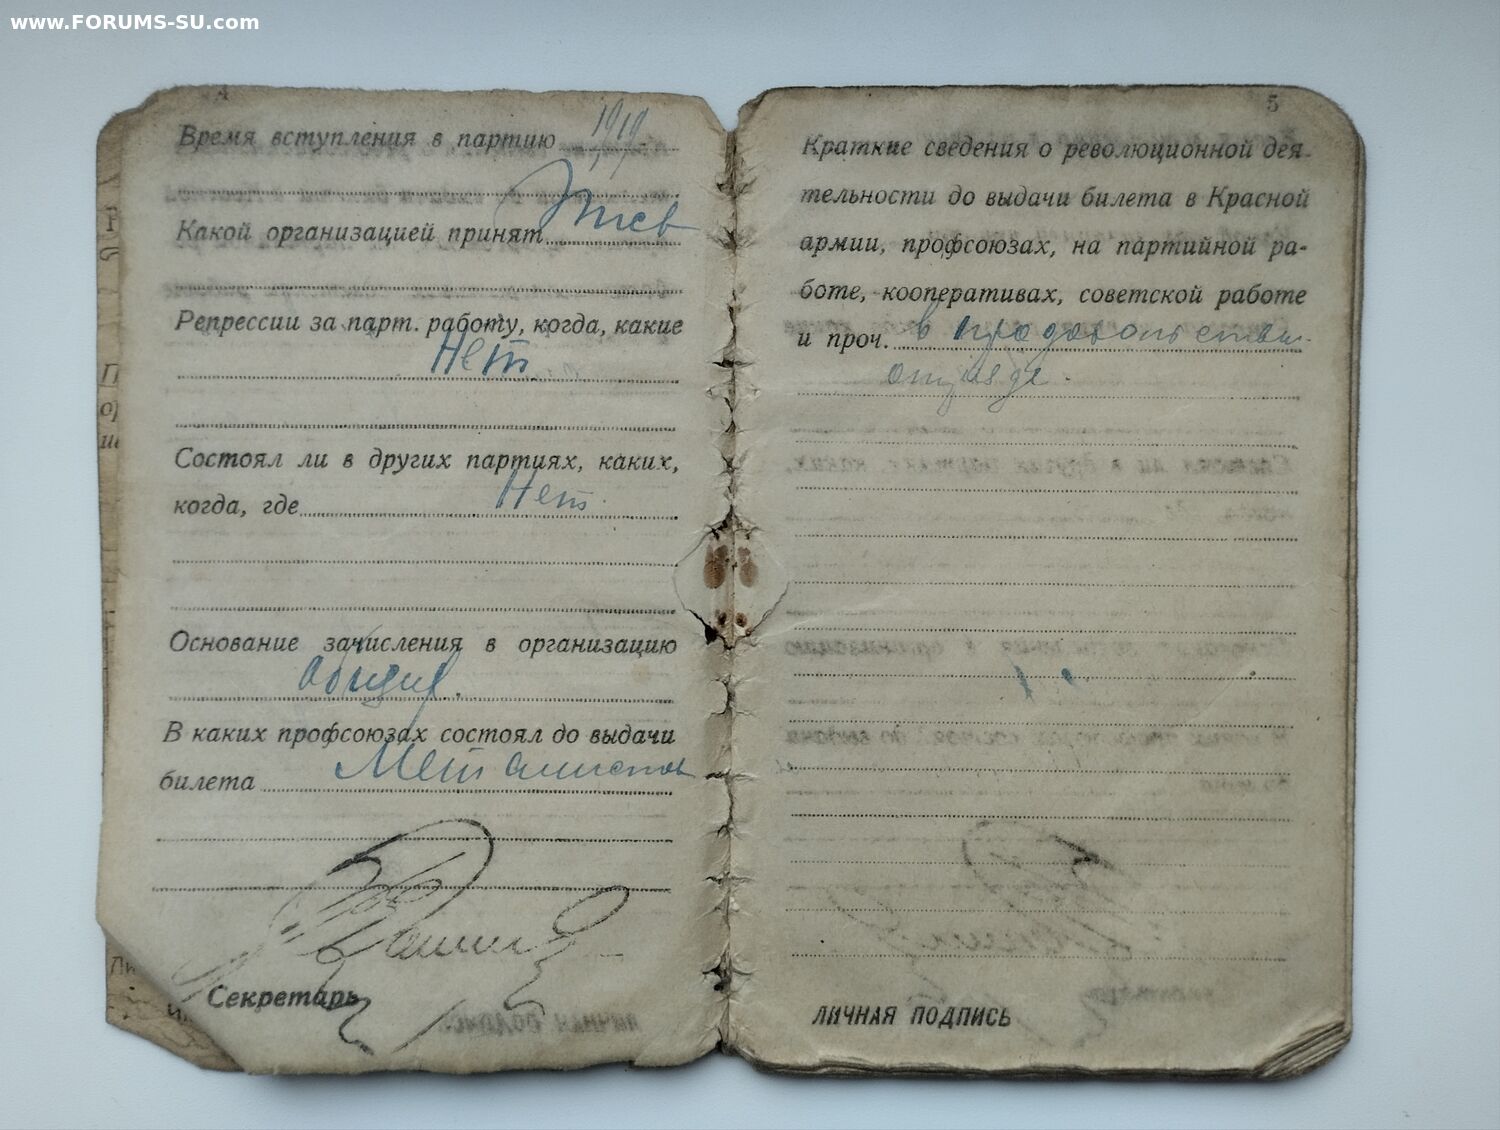 www.FORUMS-SU.com
4
Время вступления в партию 1919
Какой организацией принят
Репрессии за парт. работу, когда, какие
Нет
Состоял ли в других партиях, каких,
когда, где Нет.
Основание зачисления в организацию
В каких профсоюзах состоял до выдачи
билета Металлистов
Секретарь
5
Краткие сведения о революционной дея-
тельности до выдачи билета в Красной
армии, профсоюзах, на партийной ра-
боте, кооперативах, советской работе
и проч. в продовольствен.
отряде.
ЛИЧНАЯ ПОДПИСЬ